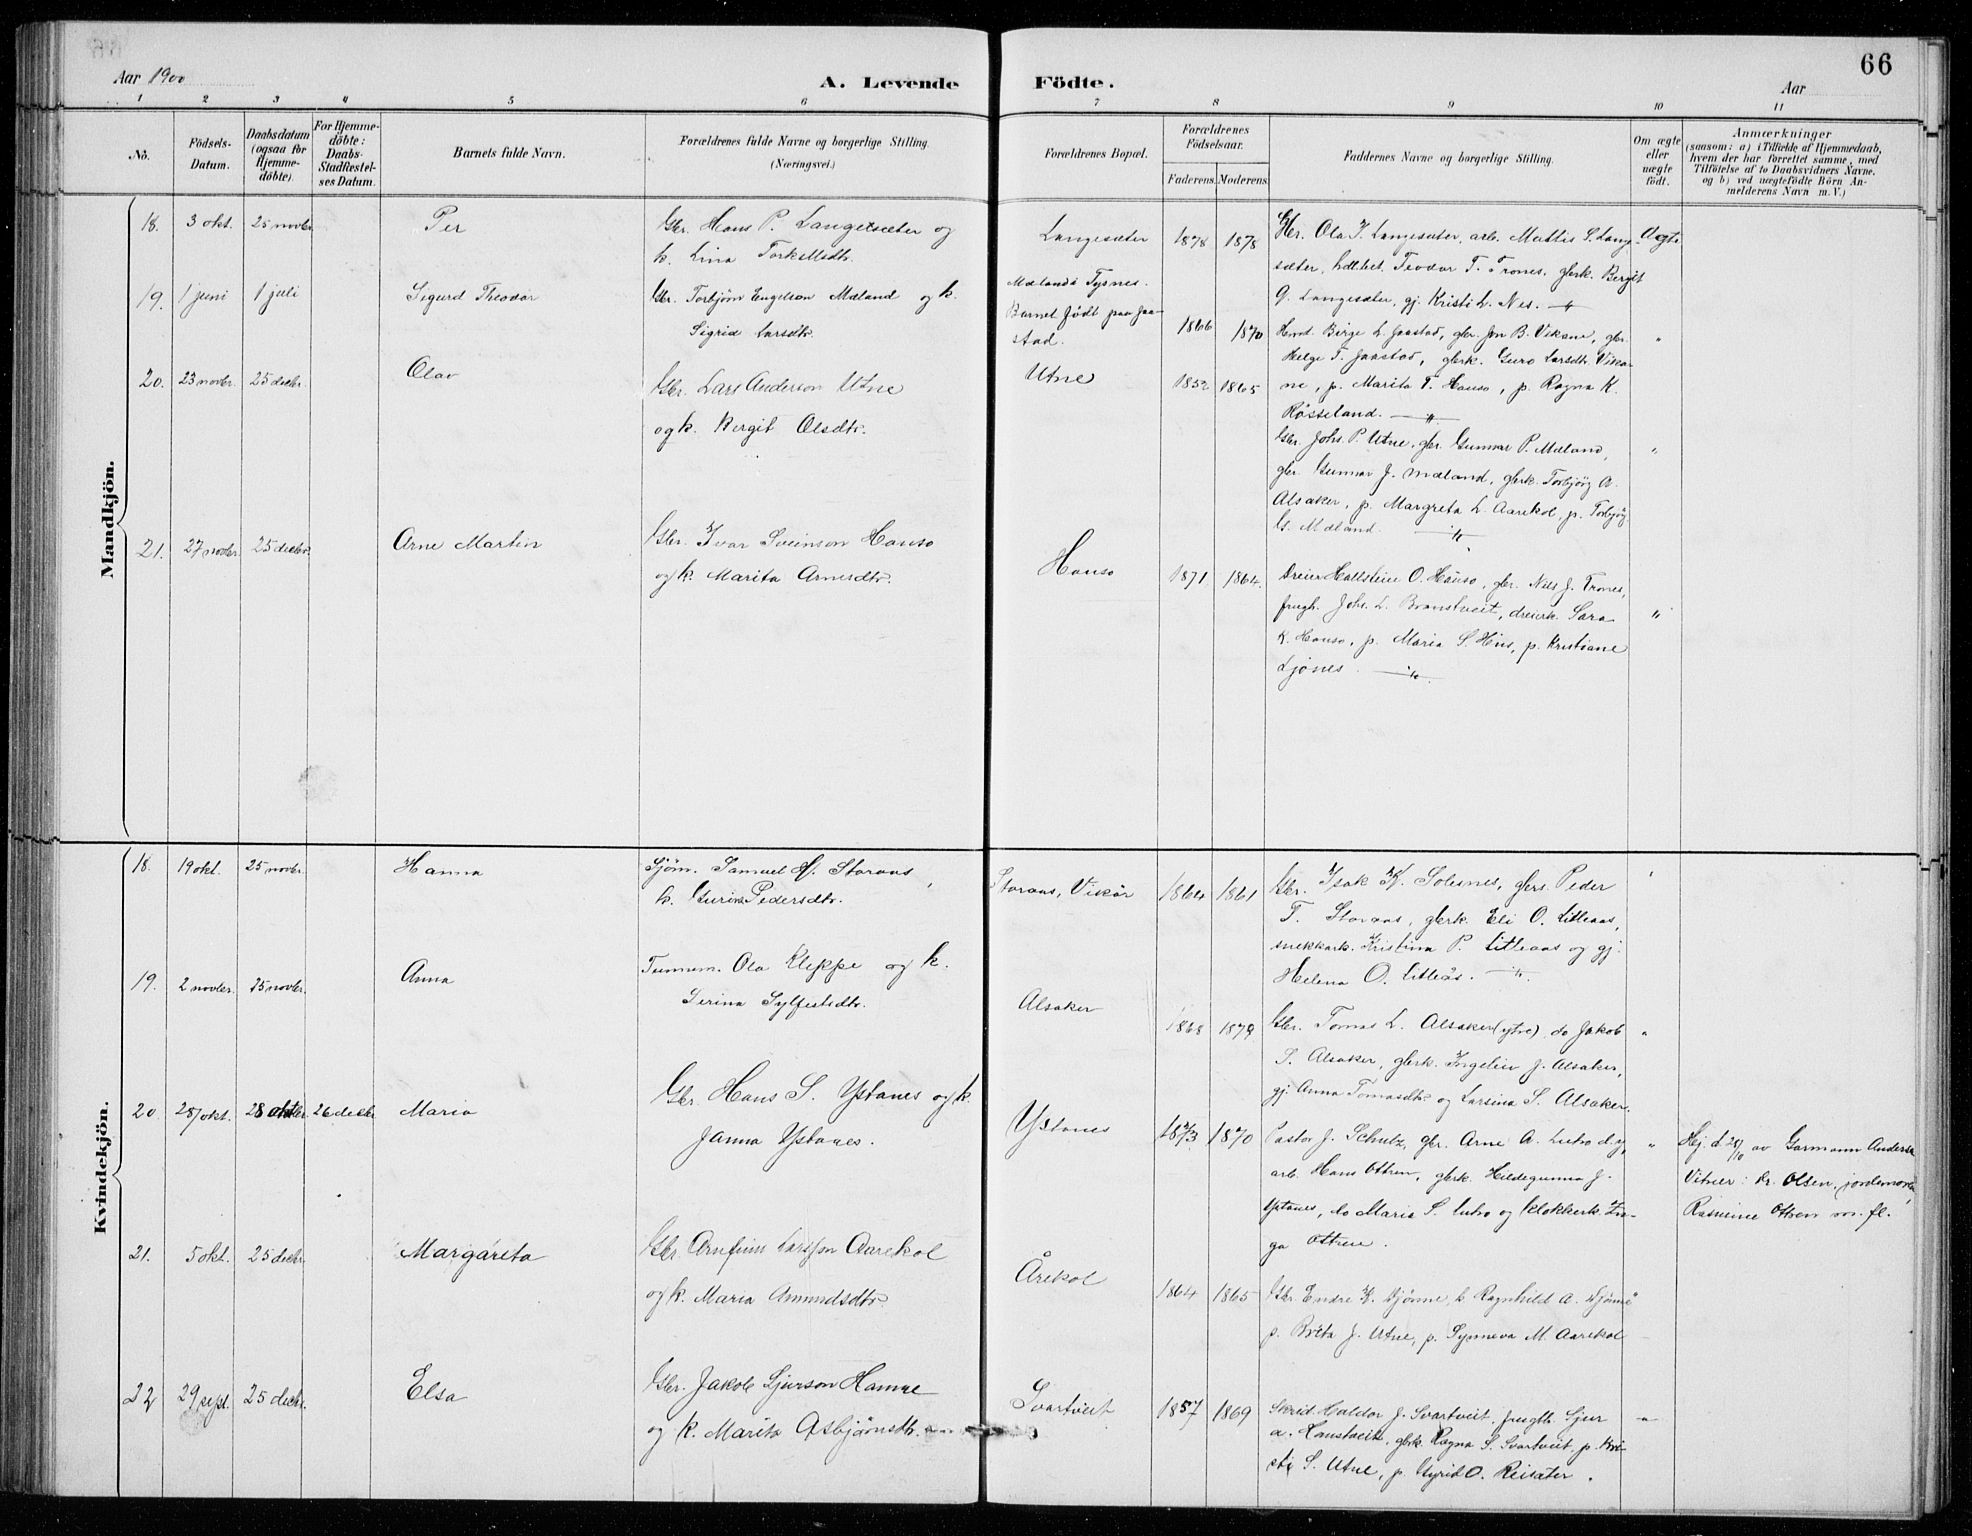 66
Aar 1900
A. Levende
Födte.
Aar
1 2 3 4 5 6 7 8 9 10 11
No.
Födsels-Datum.
Daabsdatum (ogsaa for Hjemme-döbte).
For Hjemme-döbte: Daabs-Stadfæstel-ses Datum.
Barnets fulde Navn.
Forældrenes fulde Navne og borgerlige Stilling.
(Næringsvei.)
Forældrenes Bopæl.
Forældrenes Födselsaar.
Faderens. Moderens.
Faddernes Navne og borgerlige Stilling.
Om ægte eller uægte födt.
Anmærkninger
(saasom: a) i Tilfælde af Hjemmedaab,
hvem der har forrettet samme, med
Tilföielse af to Daabsvidners Navne,
og b) ved uægtefödte Börn An-
melderens Navn m. V.)
Mandkjön.
18. 3 okt. 25 novbr. Per
Gbr. Hans P. Langesæter og
k. Lina Torkelsdtr.
Langesæter 1878 1878
Gbr. Ola T. Langesæter, arb. Mattis S. Lang-
sæter, Teodor T. Trones, gbrk. Bergit
G. Langesæter, gj. Kristi L. Nes. —"—
Ægte
19. 1 juni 1 juli Sigurd Theodor
Gbr. Torbjörn Engelson Mæland og k.
Sigrid Larsdtr.
Mælands Tysnes.
Barnet födt paa Jaa-
stad. 1866 1870
Birge L. Jaastad, gbr. Jon B. Vikane, gbr.
Helge T. Jaastad, gbrk. Guro Larsdtr. Vika-
ne, p. Marita T. Hauso, p. Ragna K.
Røsseland. —"—
"
20. 23 novbr. 25 decbr. Olav
Gbr. Lars Anderson Utne
og k. Bergit Olsdtr.
Utne 1852 1865
Gbr. Johs. P. Utne, gbr. Gunnar P. Mæland,
gbr. Gunnar J. Mæland, gbrk. Torbjörg A.
Alsaker, p. Margreta L. Aarekol, p. Torbjörg
G. Mæland —"—
"
21. 27 novbr. 25 decbr. Arne Martin
Gbr. Ivar Sveinson Hauso
og k. Marita Arnesdtr.
Hauso 1871 1864.
Dreier Hallstein O. Hauso, gbr. Nils J. Trones,
frugh. Johs. L. Branstveit, dreierk. Sara
K. Hauso, p. Maria S. Hus, p. Kristiane
Ljönes. —"—
"
Kvindekjön.
18. 19 okt. 25 novbr. Hanna
Sjöm. Samuel H. Storaas,
k. Guri Pedersdtr.
Storaas, Vikör 1864 1861
Gbr. Isak K. Solesnes, gbrs. Peder
T. Storaas, gbrk. Eli O. Litleaas,
snekkark. Kristina P. Litleaas og gj.
Helena O. Litleås. —"—
19. 2 novbr. 25 novbr. Anna
Tunnm. Ola Kleppe og k.
Serina Sylfestdtr.
Alsaker 1868 1879
Gbr. Tomas L. Alsaker (ytre), do Jakob
S. Alsaker, gbrk. Ingeleiv J. Alsaker,
gj. Anna Tomasdtr. og Larsina S. Alsaker.
"
20. 28/okt. 28 oktbr. 26 decbr. Maria
Gbr. Hans S. Ystanes og k.
Janna Ystanes.
Ystanes 1873 1870
Pastor J. Schulz, gbr. Arne A. Lutro d. y,
arb. Hans Ottren, gbrk. Hildegunna J.
Ystanes, do Maria S. Lutro og klokkerk. In-
ga Ottren.
"
Hj. d. 28/10 av Garmann Anders
Vitner: Kr. Olsen, jordemor
Rasmine Ottren m. fl.
21. 5 okt. 25 decbr. Margáreta
Gbr. Arnfinn Larsson Aarekol
og k. Maria Amundsdtr.
Årekol 1864 1865
Gbr. Endre K. Djönne, k. Ragnhild A. Djönne
p. Brita J. Utne, p. Synneva M. Aarekol
22 29 sept. 25 decbr. Elsa
Gbr. Jakob Sjurson Hamre
og k. Marita Asbjörnsdtr.
Svartveit 1857 1869
Haldor J. Svartveit, frugth. Sjur
a. Haustveit, gbrk. Ragna S. Svartveit, p. Kri-
sti S. Utne, p. Gyrid O. Reisæter.